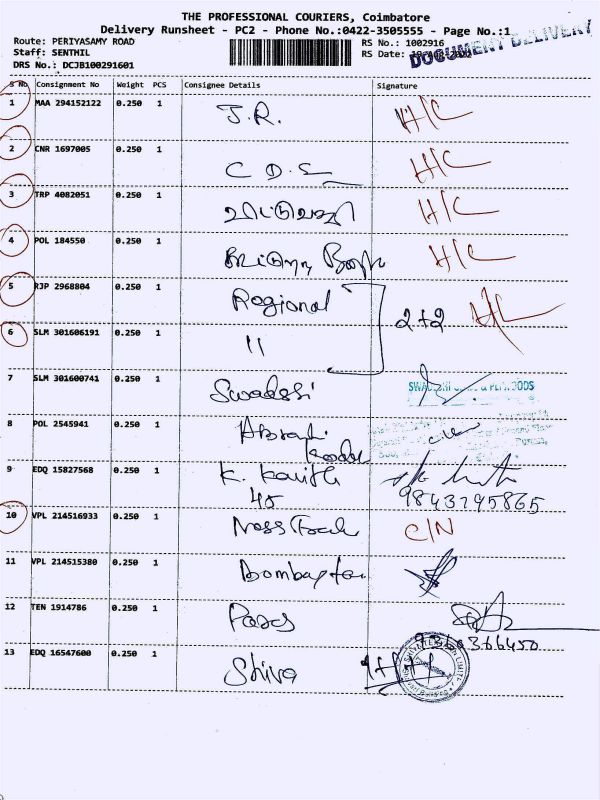 THE PROFESSIONAL COURIERS, Coimbatore
Delivery Runsheet - PC2 - Phone No.:0422-3505555 - Page No.:1
Route: PERIYASAMY ROAD
RS No.: 1002916
DOCUMENT DELIVERY
Staff: SENTHIL
RS Date:
DRS No.: DCJB100291601
S No Consignment No Weight PCS Consignee Details Signature
1 MAA 294152122 0.250 1 J.R. H/C
2 CNR 1697005 0.250 1 C D S H/C
3 TRP 4082051 0.250 1 H/C
4 POL 184550 0.250 1 H/C
5 RJP 2968804 0.250 1 Regional 2+2 H/C
6 SLM 301606191 0.250 1 11
7 SLM 301600741 0.250 1 Swadesi
8 POL 2545941 0.250 1
9 EDQ 15827568 0.250 1 K. Kavith
9843295865
10 VPL 214516933 0.250 1 C/N
11 VPL 214515380 0.250 1
12 TEN 1914786 0.250 1
9360366450
13 EDQ 16547600 0.250 1 Shiva